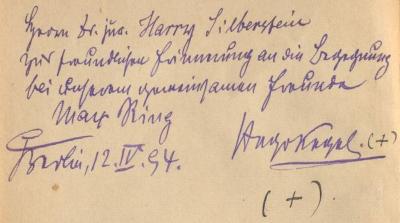 Herrn Dr. jur. Harry Silberstein
zur freundlichen Erinnerung an die Begegnung
bei unserem gemeinsamen Freunde
Max Ring
Berlin, 12. IV. 94. Hugo Kegel. (+)
(+)